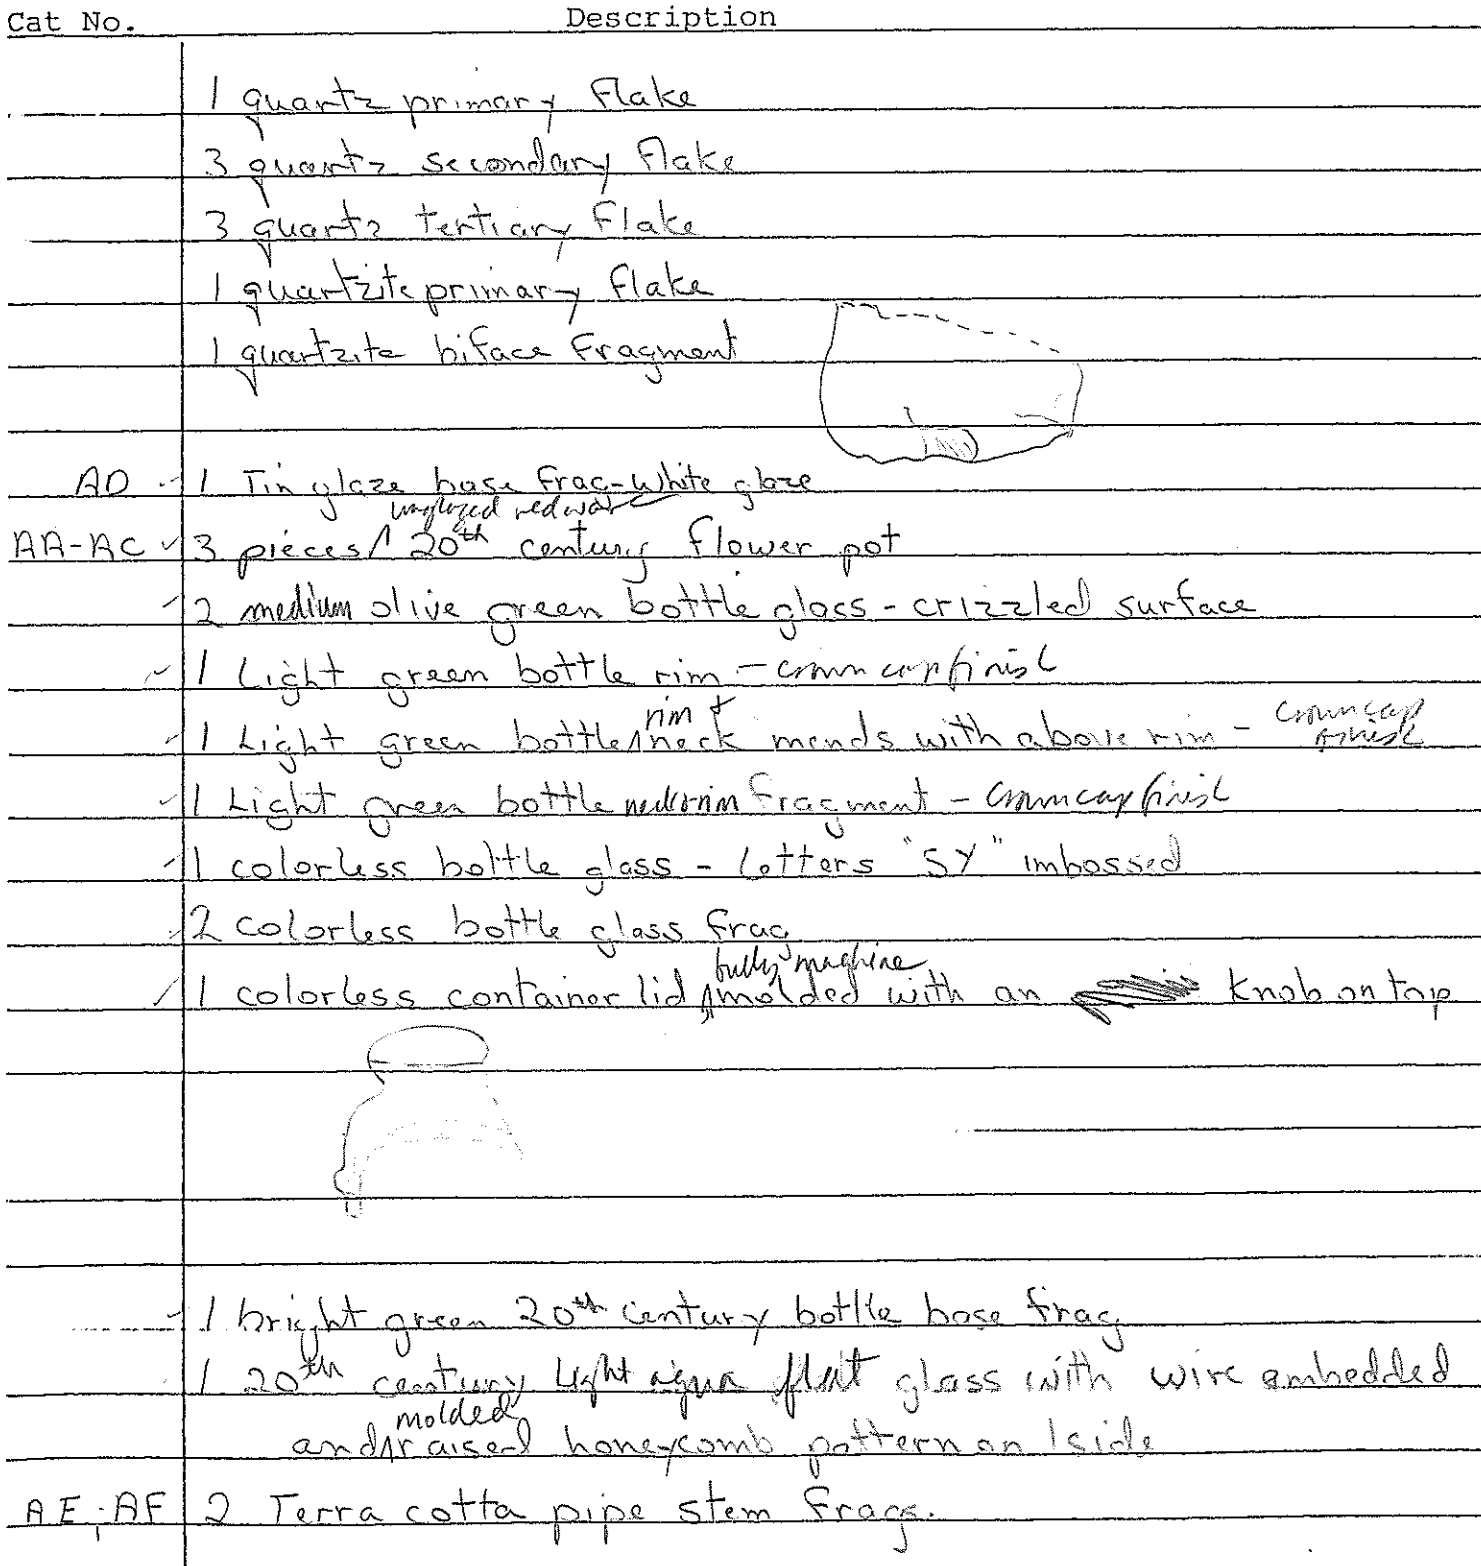 Cat No. Description
1 quartz primary flake
3 quartz secondary flake
3 quartz tertiary flake
1 quartzite primary flake
1 quartzite biface fragment
AD 1 Tin glaze base frag-white glaze
unglazed redware
AA-AC 3 pieces 20th century flower pot
2 medium olive green bottle glass - crizzled surface
1 Light green bottle rim - crown cap finish
1 Light green bottle rim + neck mends with above rim - crown cap finish
1 Light green bottle neck+rim fragment - crown cap finish
1 colorless bottle glass - letters "SY" imbossed
2 colorless bottle glass frag
fully machine
1 colorless container lid molded with an knob on top
1 bright green 20th century bottle base frag
1 20th century light aqua flat glass with wire embedded
molded
and raised honeycomb pattern on 1 side
AE, AF 2 Terra cotta pipe stem frags.